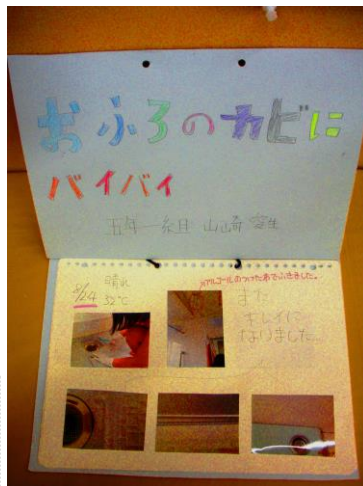 おふろのカビに
バイバイ
五年一組 山崎
8/24
晴れ
32℃
アルコールのつけた布でふきました。
また
キレイに
なりました